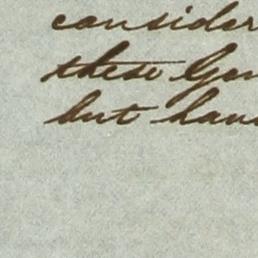 consider
these Gen
but have